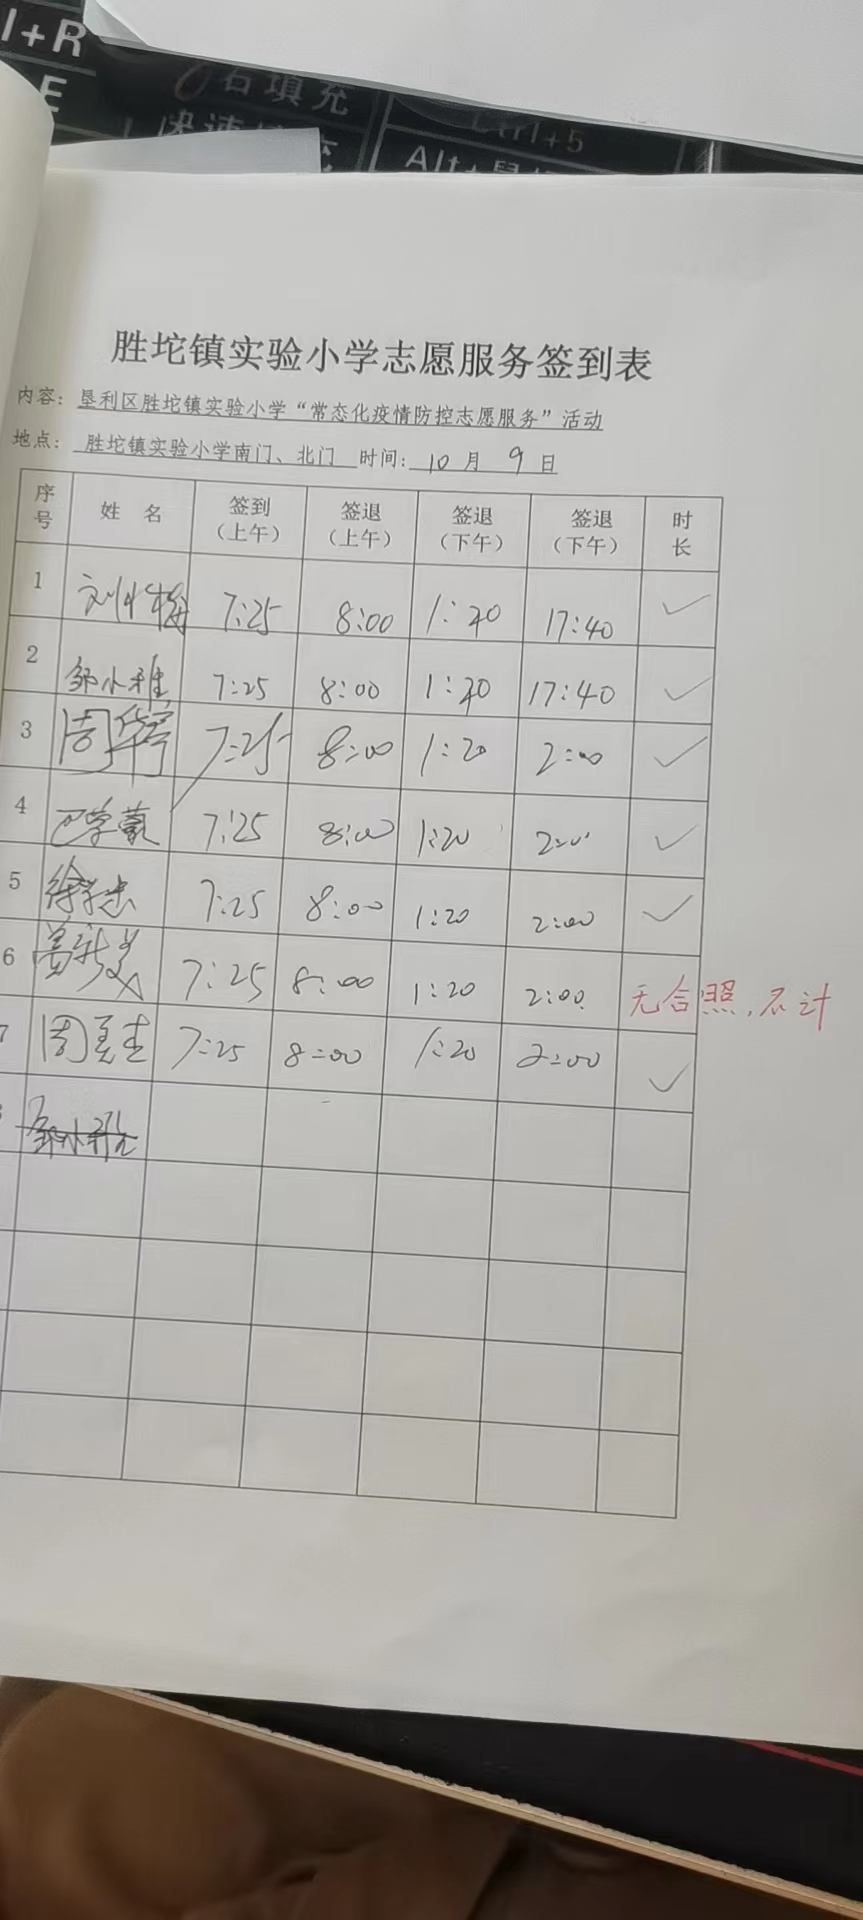 l+R
E
右填充
快速填充
Ctrl+5
Alt+
胜坨镇实验小学志愿服务签到表
内容：垦利区胜坨镇实验小学“常态化疫情防控志愿服务”活动
地点：胜坨镇实验小学南门、北门 时间：10月9日
序号 姓名 签到（上午） 签退（上午） 签退（下午） 签退（下午） 时长
1 7:25 8:00 1:20 17:40 ✓
2 邹小雅 7:25 8:00 1:20 17:40 ✓
3 周华 7:25 8:00 1:20 2:00 ✓
4 巴学 7:25 8:00 1:20 2:00 ✓
5 徐 7:25 8:00 1:20 2:00 ✓
6 7:25 8:00 1:20 2:00 无合照，不计
7 周 7:25 8:00 1:20 2:00 ✓